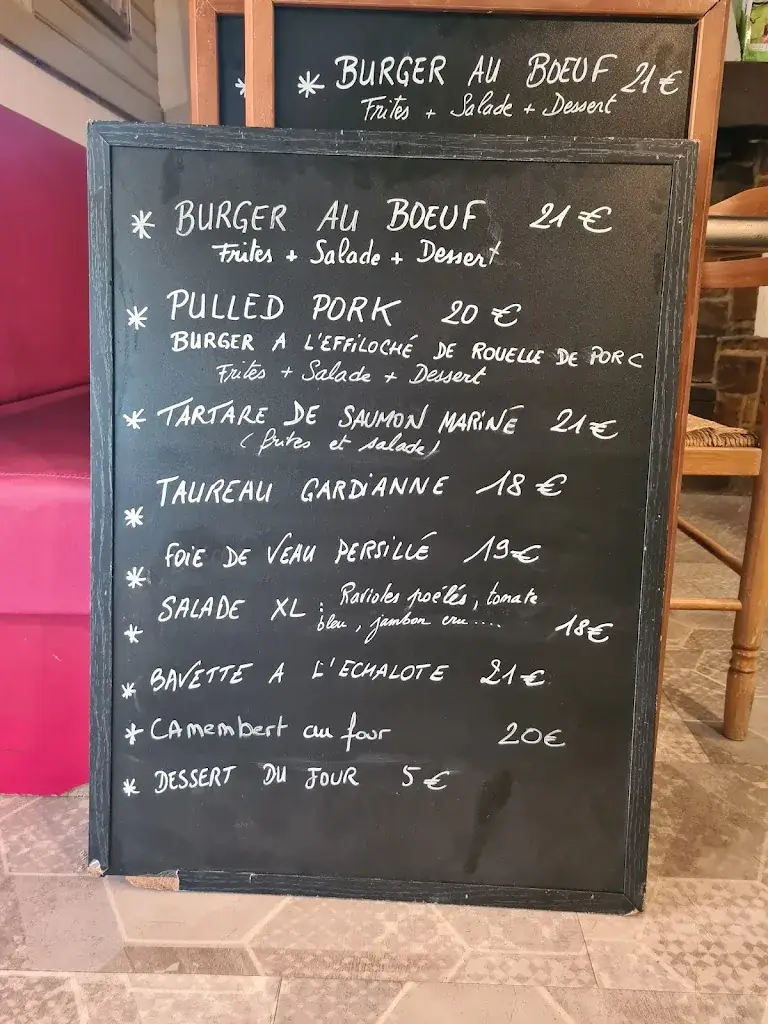 * BURGER AU BOEUF 21€
Frites + Salade + Dessert
* BURGER AU BOEUF 21€
Frites + Salade + Dessert
* PULLED PORK 20€
BURGER A L'EFFILOCHÉ DE ROUELLE DE PORC
Frites + Salade + Dessert
* TARTARE DE SAUMON MARINÉ 21€
(frites et salade)
* TAUREAU GARDIANNE 18€
* FOIE DE VEAU PERSILLÉ 19€
* SALADE XL : Ravioles poélés, tomate
bleu, jambon cru.... 18€
* BAVETTE A L'ECHALOTE 21€
* CAmembert au four 20€
* DESSERT DU JOUR 5€